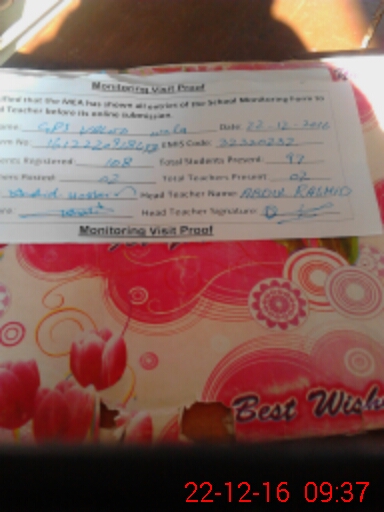 Monitoring Visit Proof
ified that the MEA has shown all entries of the School Monitoring Form to
d Teacher before its online submission.
ame GPS Date: 22-12-2016
EMIS Code:
ents Registered: 108 Total Students Present: 97
hers Posted: 02 Total Teachers Present: 02
Head Teacher Name: ABDUL RASHID
Head Teacher Signature:
Monitoring Visit Proof
Best Wishe
22-12-16 09:37